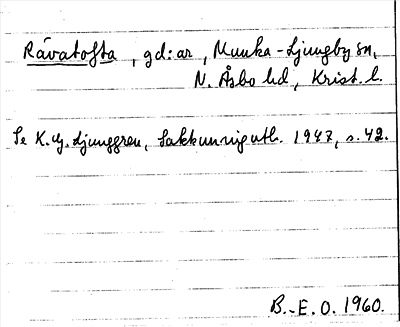 Råvatofta, gd:ar, Munka-Ljungby sn,
N. Åsbo hd, Krist. l.
Se K. G. Ljunggren, Sakkunnigutl. 1947, s. 42.
B.-E. O. 1960.